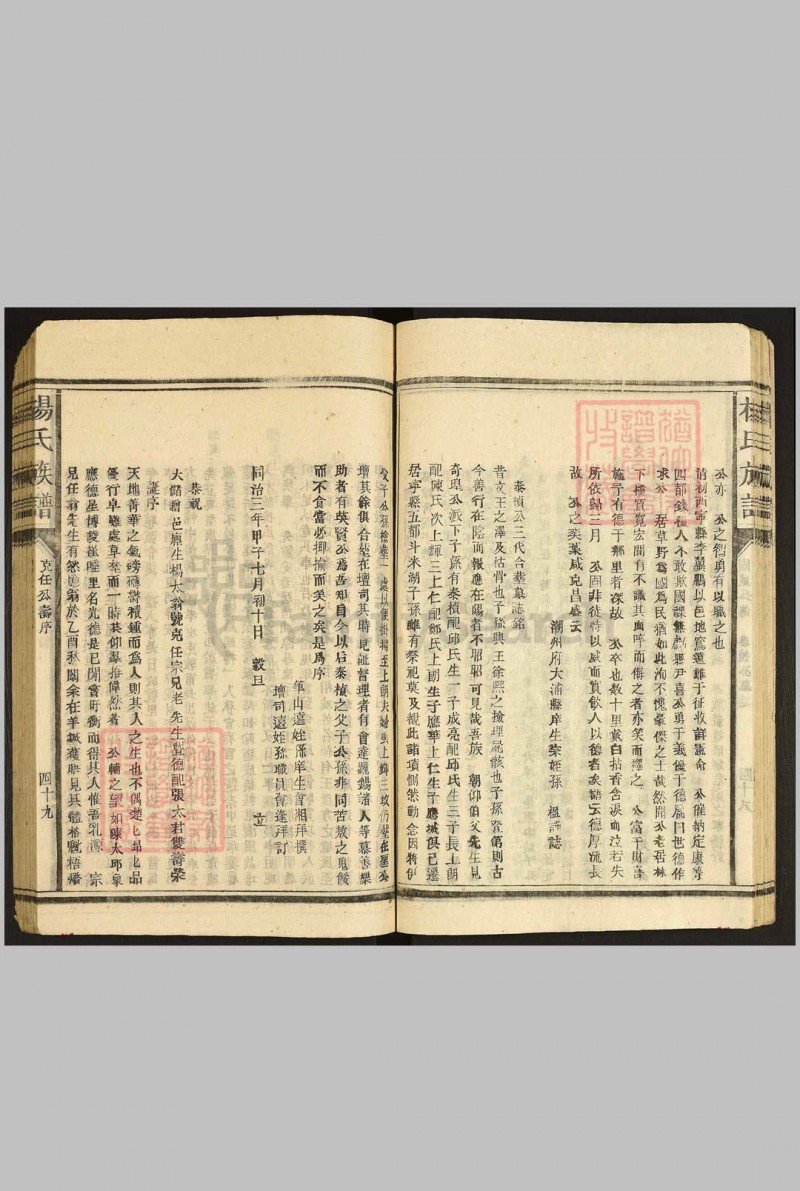 公亦 公之智勇有以職之也
清初西寧縣李翼鵬以邑地窵遠難于征收詳憲命 公催納定康等
四都錢糧人不敢欺國課無虧署尹喜公勇于義優于德扁曰世德作
求公 居草野為國為民猶如此洵不愧豪傑之士哉然聞公老居林
下擴實寬宏間有不識其輿啐而侮之者亦笑而擇之 公富于財喜
施予有德于鄉里者深故 公卒也数十里戴白拈香含淚而泣若失
所依歸三月 公固非徒恃以威而實飲人以德者矣語云德厚流長
故 公之奕葉咸克昌盛云
潮州府大浦縣庠生宗姪孫 楹謹誌
泰楨公三代合塟墓誌銘
昔文王之澤及枯骨也子孫興王徐熙之撿埋屍骸也子孫登第則古
今善行在陰而報應在陽者不昭昭可見哉吾族 朝仰伯父先生見
奇琩公派下子孫有泰楨配邱氏生一子成亮配邱氏生三子長上朝
配陳氏次上輝三上仁配鄒氏上朝生子應華上仁生子應城俱已遷
居寧縣五都斗米湖子孫雖有祭祀莫及覩此諸項惻然動念因將伊
父子公孫撿塟一處以便掛掃至上朝夫婦與上輝三坟仍塟在屋公
壇其餘俱合塟在壇司其時見証督理者有會達飄錫諸人等慕善樂
助者有英賢公為吾知自今以后泰楨之父子公孫非同苦敖之鬼餒
而不食當必揶揄而笑之矣是為序
龜山遠姪孫庠生會湘拜撰
壇司遠姪孫職員會逢拜訂
同治三年甲子七月初十日 穀旦 立
恭祝
大儲贈邑廩生楊太翁號克任宗兄老先生暨德配張太君雙壽榮
誕序
天地菁華之氣磅礡欝積鍾而為人則其人之生也不偶楚之品
優行卓雖處草萊而一時共仰羣推偉然著 公輔之望如陳太邱象
應德星博陵崔陸里名光德是已閒嘗盱衡而得其人惟吾乳源 宗
兄任翁先生有然憶翁於乙酉秋闈余在羊城獲晤見其體格魁梧襟
楊氏族譜
克任公壽序
四十九
楊氏族譜
四十八